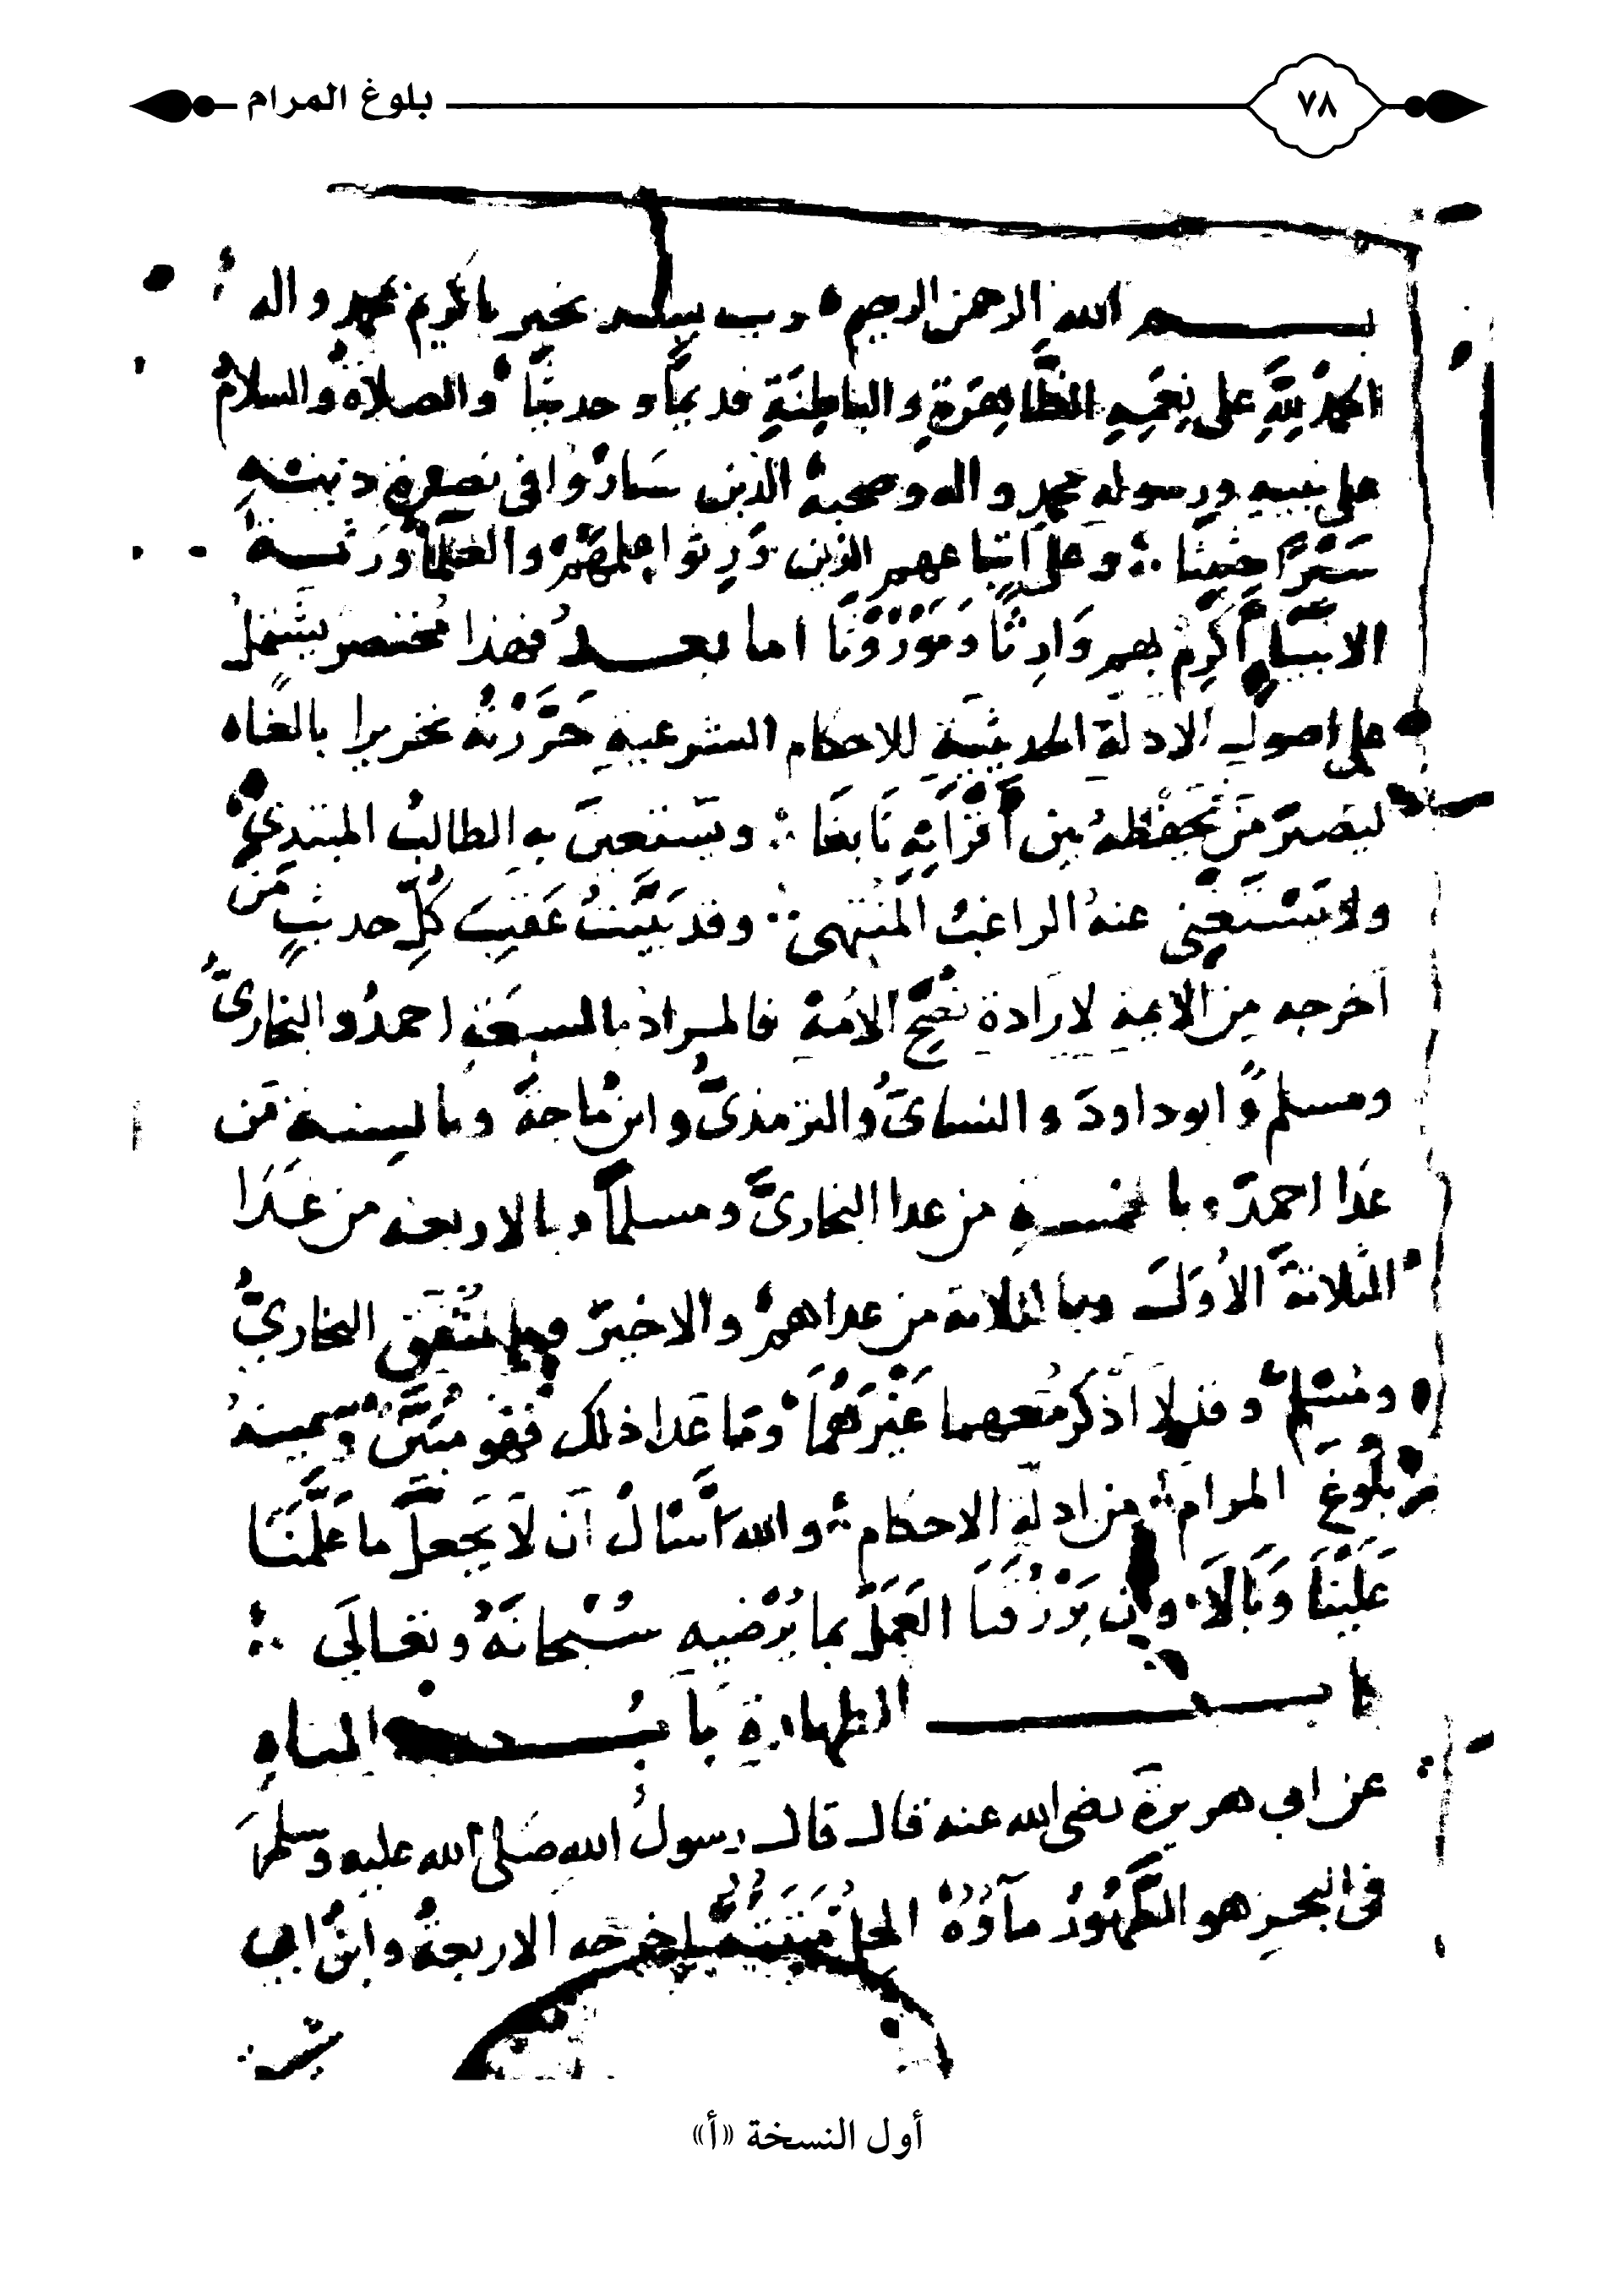 ٧٨
بلوغ المرام
بسم الله الرحمن الرحيم رب يسر بخير يا كريم بمحمد واله
الحمدُ لِلَّهِ على نِعَمِهِ الظَّاهِرَةِ والباطِنَةِ قديمًا وحديثًا والصلاةُ والسلامُ
على نبيه ورسوله محمد واله وصحبه الذين سَارُوْا في نصرة دينه
سَيْرًا حثِيثًا وعلى أتباعهم الذين وَرِثوا علمهُمْ والعلمآءُ ورثة
الانبياءِ أَكْرِمْ بهم وَارِثًا وَمَوْرُوْثًا اما بعد فهذا مُختصر يشتملُ
على اصول الادلة الحديثيَّةِ للاحكام الشرعيةِ حَرَّرْتُه تحريرا بالغًا
ليصيرَ مَن يَحْفظهُ مِن أَقْرَانِهِ نَابغًا ويستعينَ به الطالبُ المبتدِيْ
ولا يَسْتغنِي عنهُ الراغبُ المُنْتهى وقد بَيَّنتُ عَقِبَ كُلِّ حديثٍ مَن
أخرجه مِن الايمة لارَادة نُصْحِ الأمة فالمراد بالسبعَةِ احمدُ والبخارىُّ
ومسلمٌ وابوداودَ والنساىُّ والترمذىُّ وابن ماجة وبالستة مَن
عَدَا احمدَ وبالخمسةِ من عدا البخارىَّ ومسلمًا وبالاربعة من عَدَا
الثلاثةَ الأُوَلَ وبالثلاثة من عداهمْ والاخيرَ وبالمُتَّفَقِ البخاريُّ
ومُسْلِمٌ وقد لا أَذْكرُ معهما غَيْرَهُمَا وَمَا عَدا ذلك فهُو مُبَيَّنٌ وسميتهُ
بلُوْغَ المرام من ادلة الاحكام والله أَسْالُ أن لا يَجعلَ ما عَلَّمَنَا
عَلَيْنَا وَبَالًا وأن يَرْزُقَنَا العَمَلَ بما يُرْضيه سُبْحانَهُ وتعَالَى
كتاب الطهارةِ بابُ المياهِ
عن ابي هريرةَ رضى الله عنه قال قال رسولُ الله صَلى الله عليه وسلمَ
فى البحرِ هو الطَّهُوْرُ مآؤُهُ الحلُّ مَيْتَتُهُ اخرجه الاربعةُ وابنُ ابي
أول النسخة «أ»